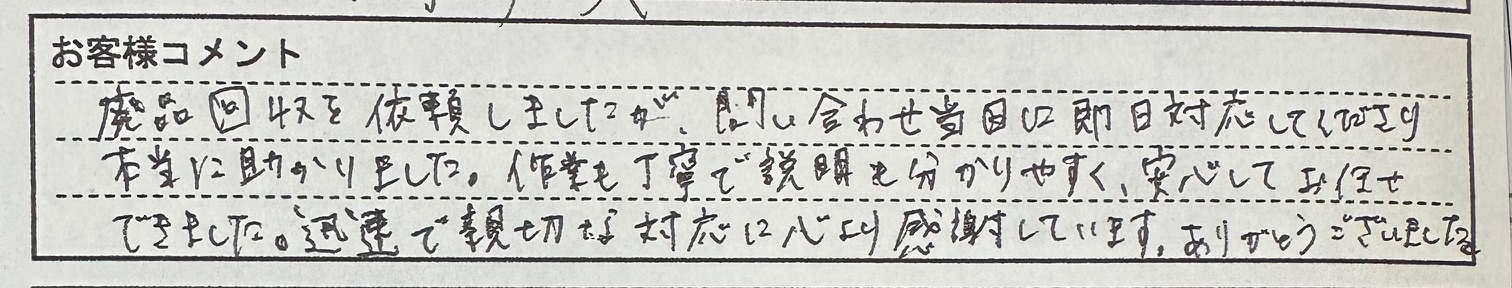 お客様コメント
廃品回収を依頼しましたが、問い合わせ当日に即日対応してくださり
本当に助かりました。作業も丁寧で説明も分かりやすく、安心してお任せ
できました。迅速で親切な対応に心より感謝しています。ありがとうございました。